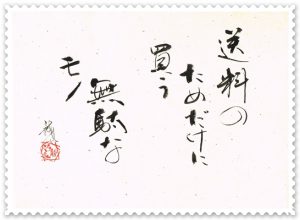 送料の
ためだけに
買う
無駄な
モノ